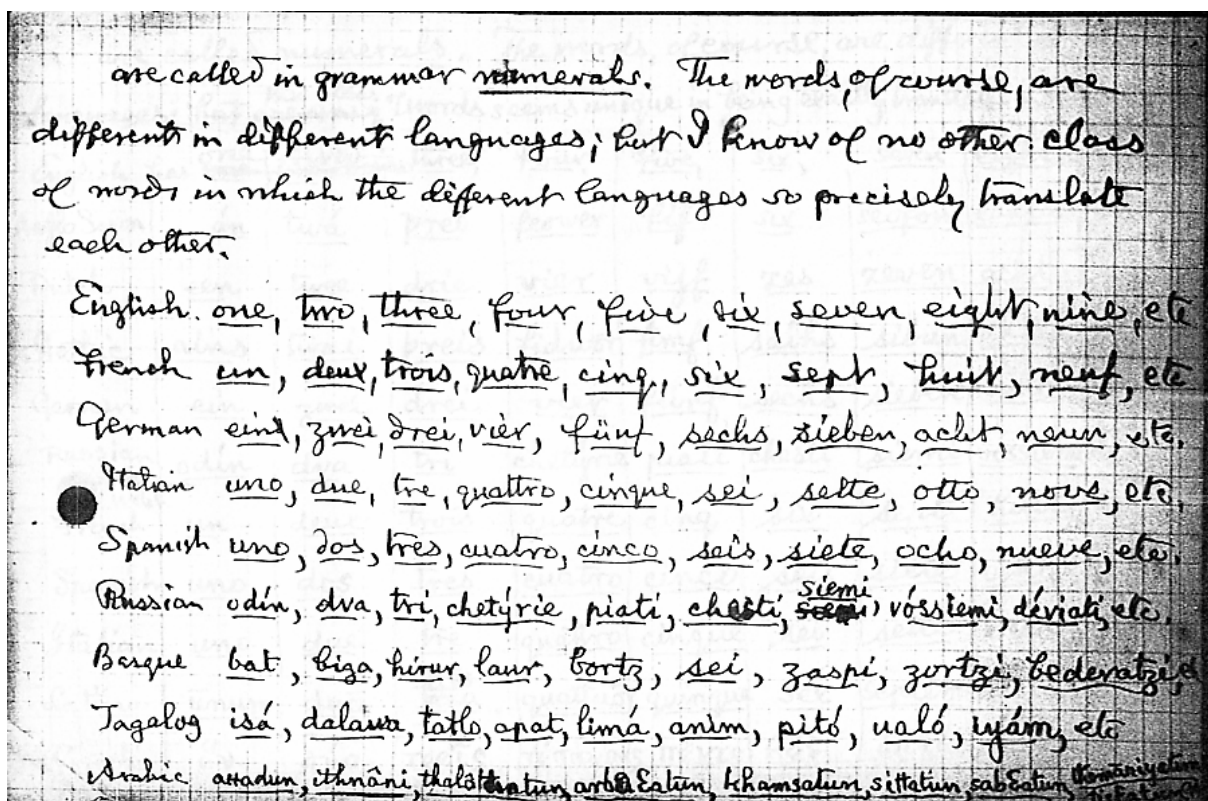 are called in grammar numerals. The words, of course, are
different in different languages; but I know of no other class
of words in which the different languages so precisely translate
each other.
English. one, two, three, four, five, six, seven, eight, nine, etc
French un, deux, trois, quatre, cinq, six, sept, huit, neuf, etc
German eins, zwei, drei, vier, fünf, sechs, sieben, acht, neun, etc.
Italian uno, due, tre, quattro, cinque, sei, sette, otto, nove, etc.
Spanish uno, dos, tres, cuatro, cinco, seis, siete, ocho, nueve, etc.
siemi
Russian odín, dva, tri, chetýrie, piati, chesti, vóssiemi, déviati, etc.
Basque bat, biga, hirur, laur, bortz, sei, zaspi, zortzi, bederatzi,
Tagalog isá, dalawa, tatlo, apat, limá, anim, pitó, ualó, iyám, etc
Arabic ithnâni, arbaEatun, khamsatun, sittatun, sabEatun,